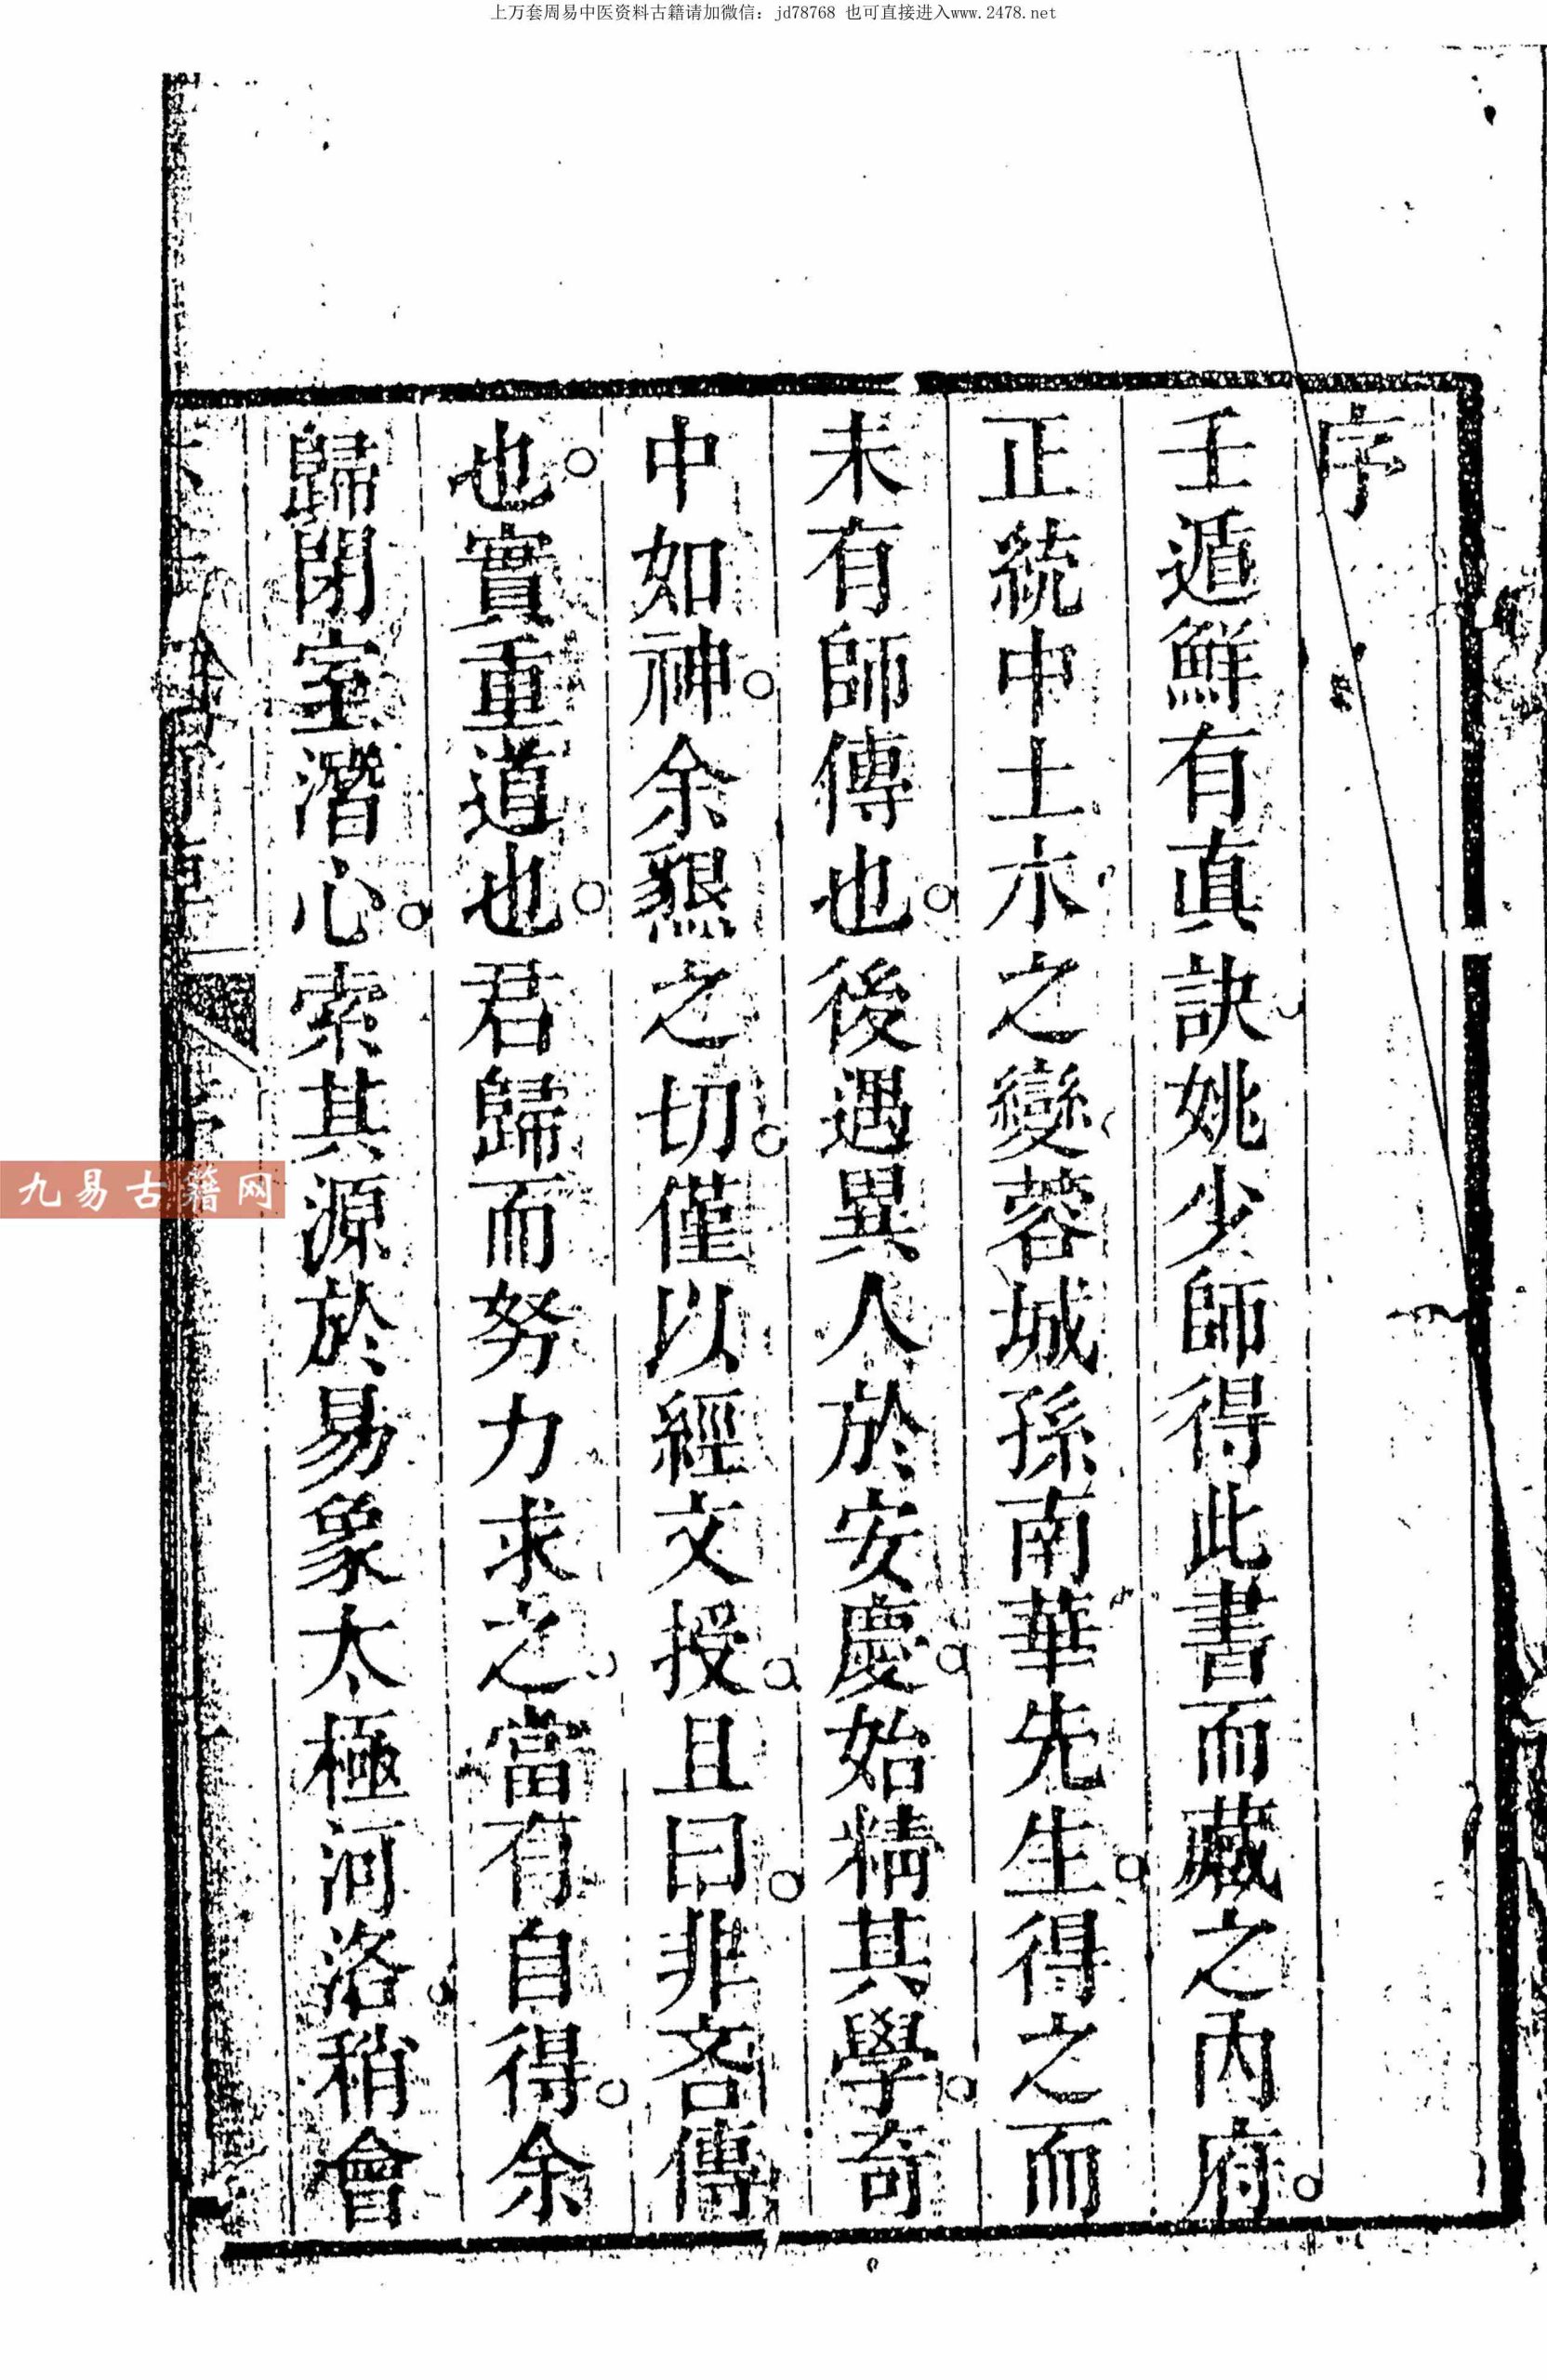 上万套周易中医资料古籍请加微信：jd78768 也可直接进入www.2478.net
序
壬遁鮮有真訣姚少師得此書而藏之內府。
正統中土木之變蓉城孫南華先生。得之而
未有師傳也。後遇異人於安慶。始精其學。奇
中如神。余懇之切。僅以經文授。且曰。非吝傳
也。實重道也。君歸而努力求之。當有自得。余
歸閉室潛心。索其源於易象太極河洛。稍會
九易古籍网